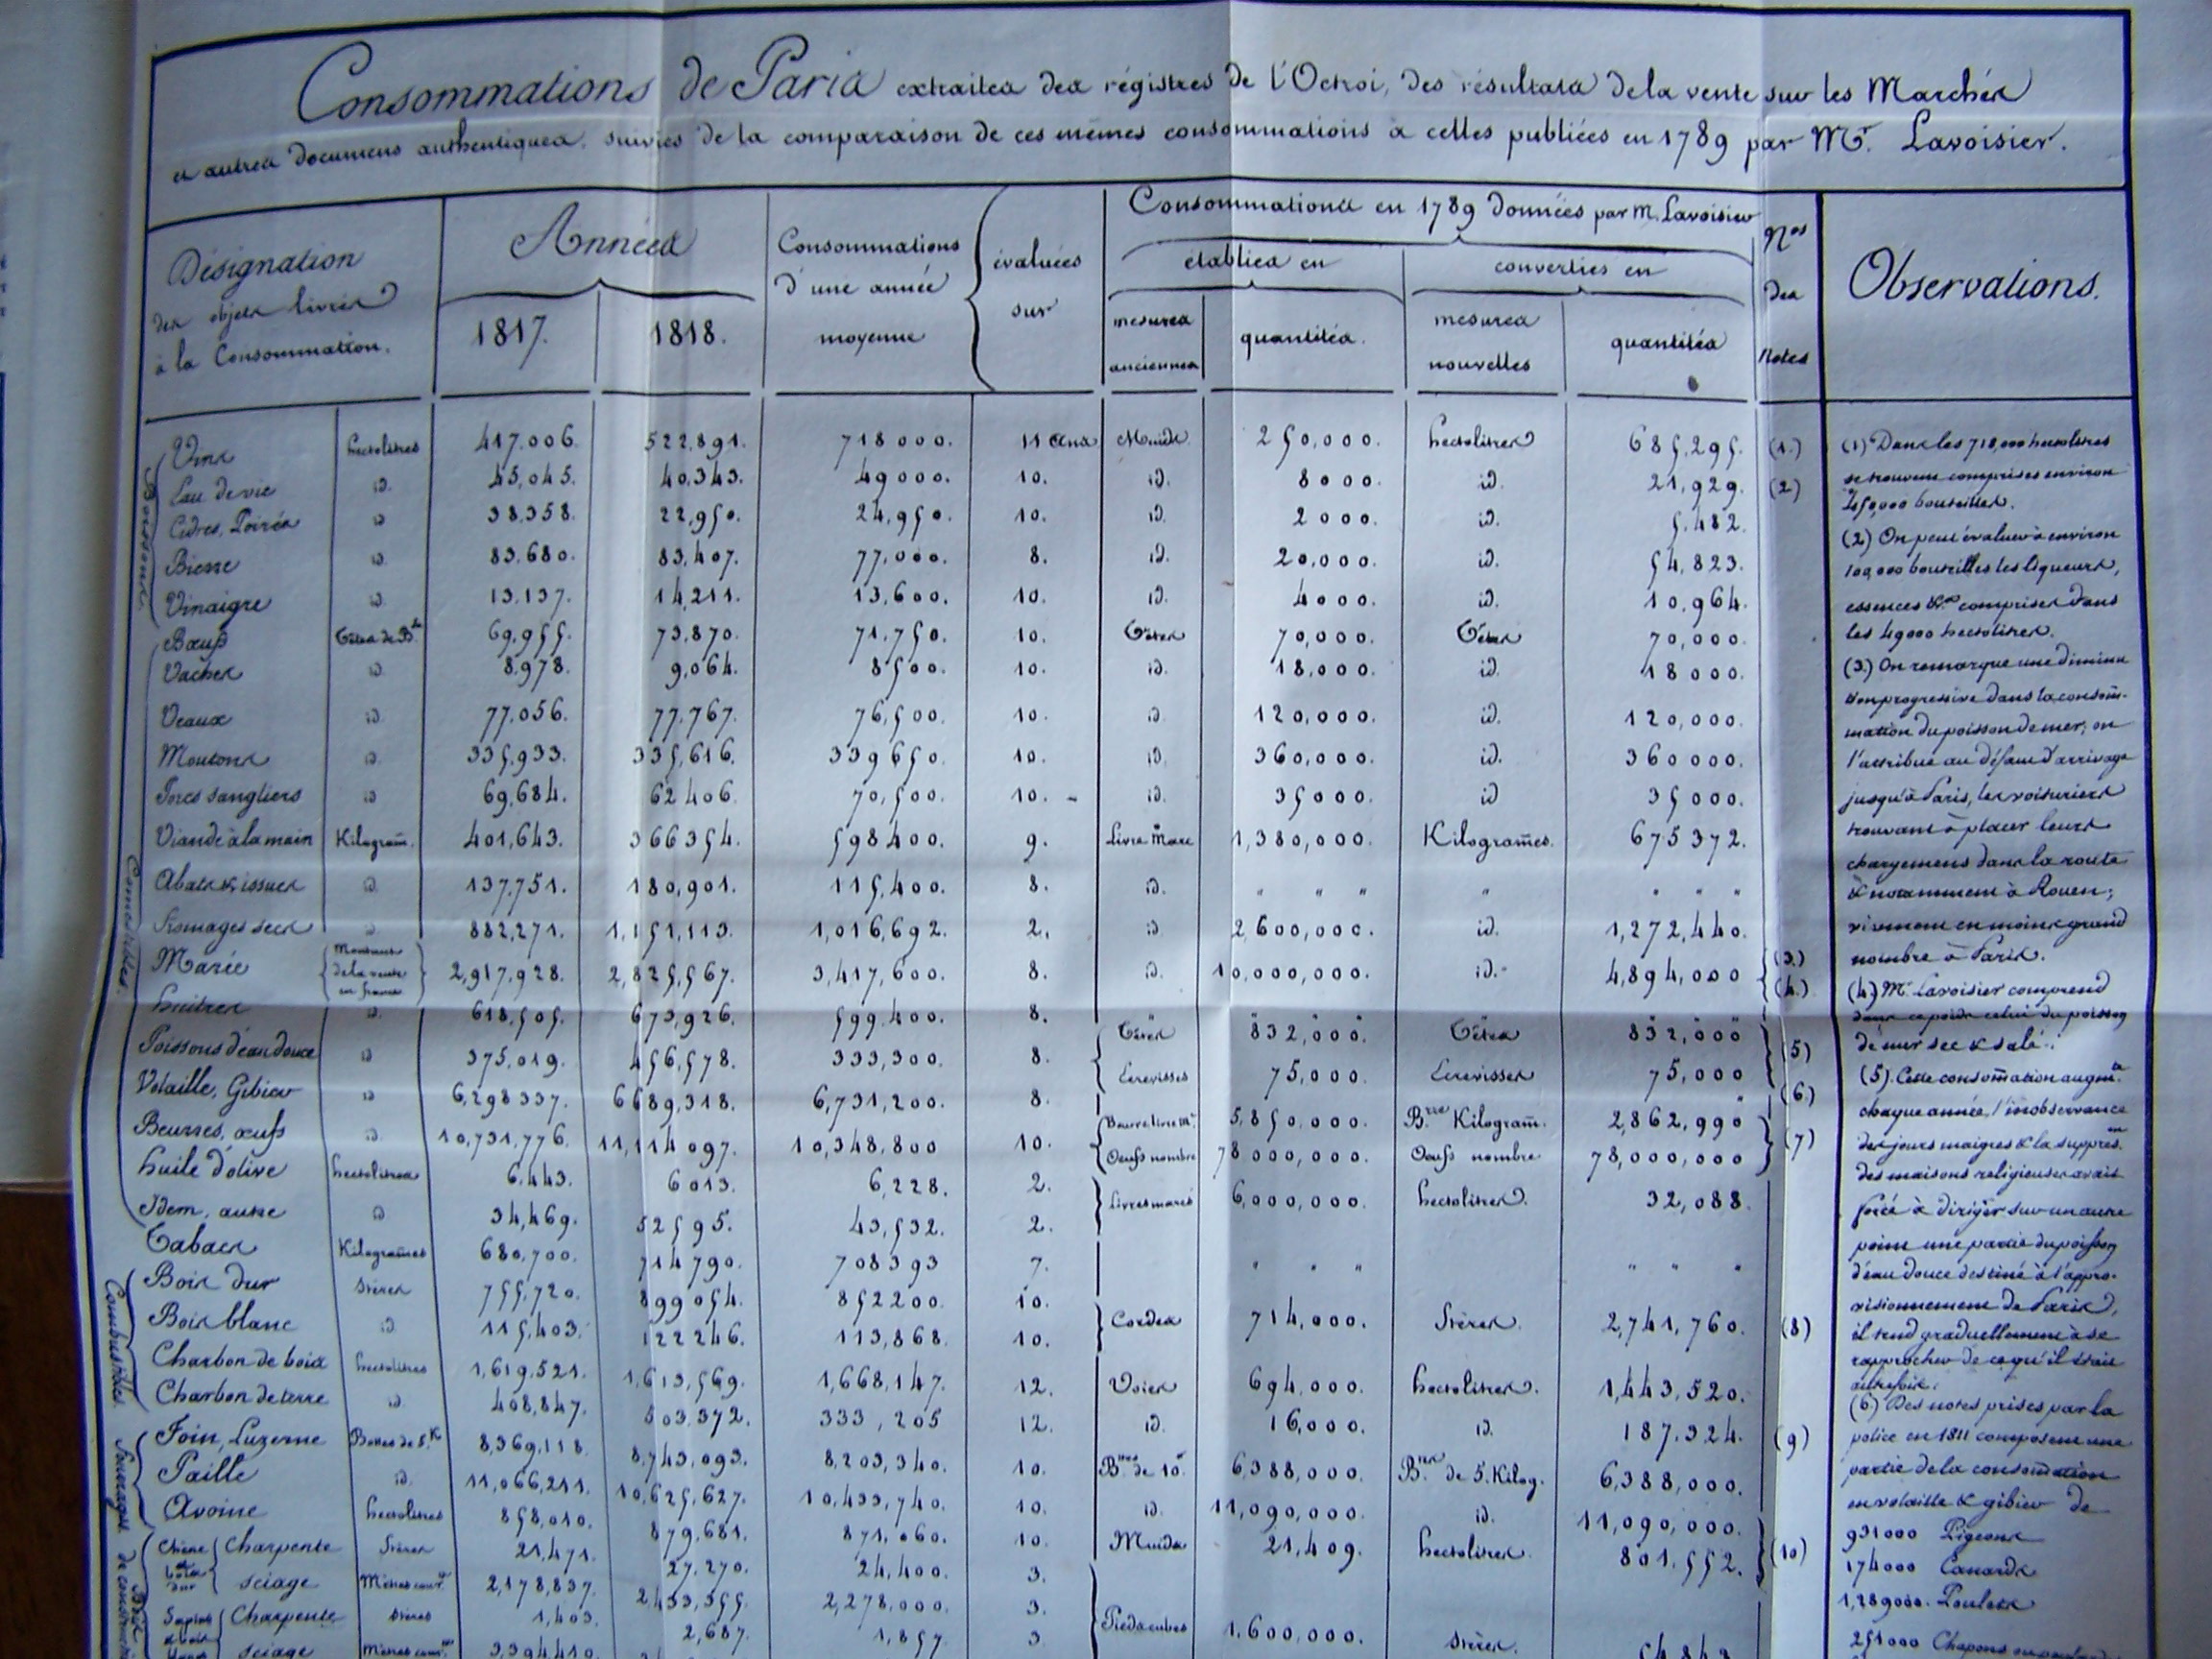 Consommations de Paris extraites des régistres de l'Octroi, des résultats de la vente sur les Marchés
et autres documens authentiques, suivies de la comparaison de ces mêmes consommations à celles publiées en 1789 par Mr. Lavoisier.
Désignation des objets livrés à la Consommation.
Années
1817. 1818.
Consommations d'une année moyenne
évaluées sur
Consommations en 1789 données par M. Lavoisier
établies en
converties en
mesures anciennes
quantités.
mesures nouvelles
quantités
Nos des Notes
Observations.
Boissons.
Vins hectolitres 417.006. 522.891. 718000. 11 ans Muids 250,000. hectolitres 685.295. (1.)
Eau de vie id. 45,045. 40.343. 49000. 10. id. 8000. id. 21,929. (2)
Cidres, Poirés id 38358. 22,950. 24,950. 10. id. 2000. id. 5.482.
Bierre id. 83.680. 83.407. 77,000. 8. id. 20,000. id. 54,823.
Vinaigre id. 13.137. 14,211. 13,600. 10. id. 4000. id. 10.964.
Comestibles.
Bœufs Têtes de Bl. 69,955. 73,870. 71,750. 10. Têtes 70,000. Têtes 70,000.
Vaches id. 8.978. 9,064. 8500. 10. id. 18,000. id. 18000.
Veaux id. 77.056. 77.767. 76,500. 10. id 120,000. id. 120,000.
Moutons id. 335.933. 335,616. 339650. 10. id. 360,000. id. 360000.
Porcs sangliers id 69,684. 62406. 70,500. 10. - id. 35000. id 35000.
Viande à la main Kilogram̄. 401,643. 366354. 598400. 9. Livre Marc 1,380,000. Kilogram̄es. 675372.
Abats & issues id. 137.751. 180,901. 115,400. 8. id. " " " " " " "
Fromages secs id. 882,271. 1,151,113. 1,016,692. 2. id 2,600,000. id. 1,272,440.
Marée Montant de la vente en francs 2,917,928. 2,825,567. 3,417,600. 8. id. 10,000,000. id. 4,894,000 (3.) (4.)
huitres id. 618,505. 673,926. 599.400. 8.
Poissons d'eau douce id 375,019. 456,578. 333,300. 8. Têtes 832,000. Têtes 832,000 (5)
Ecrevisses 75,000. Ecrevisses 75,000
Volaille, Gibier id 6,298337. 6689,318. 6,731,200. 8. (6)
Beurres, œufs id. 10,731,776. 11,114097. 10,348,800 10. Beurre livre m. 5,850,000. Bre Kilogram̄. 2,862,990 (7)
Oeufs nombre 78000,000. Oeufs nombre 78,000,000
huile d'olive hectolitres 6.443. 6013. 6,228. 2. Livres marcs 6,000,000. hectolitres. 32,088.
Idem, autre id 34,469. 52595. 43,532. 2.
Tabacs Kilogram̄es 680,700. 714790. 708393 7. " " " " " "
Combustibles.
Bois dur Stères 755,720. 899054. 852200. 10. Cordes 714,000. Stères. 2,741,760. (8)
Bois blanc id. 115,403. 122246. 113,868. 10.
Charbon de bois hectolitres 1,619,521. 1,613,569. 1,668,147. 12. Voies 694,000. hectolitres. 1,443,520.
Charbon de terre id. 408,847. 503.372. 333,205 12. id. 16,000. id. 187.324. (9)
Fourages
Foin, Luzerne Bottes de 5.K 8,369,118. 8,743,093. 8,203,340. 10. Btes de 10 6,388,000. Btes de 5. Kilog. 6,388,000.
Paille id. 11,066,211. 10,625,627. 10,433,740. 10. id. 11,090,000. id. 11,090,000.
Avoine hectolitres 858,010. 879,681. 871,060. 10. Muids 21,409. hectolitres. 801,552. (10)
Bois de construction
Chêne et bois dur Charpente Stères 21,471. 27.270. 24,400. 3.
sciage Mètres cour. 2,178,837. 2,433,355. 2,278,000. 3. Pieds cubes 1.600,000. Stères.
Sapins & bois Charpente Stères 1,403. 2,687. 1,857. 3
sciage Mètres cour. 3,394,410.
(1) Dans les 718,000 hectolitres
se trouvent comprises environ
250,000 bouteilles.
(2) On peut évaluer à environ
100,000 bouteilles les liqueurs,
essences &a comprises dans
les 49000 hectolitres.
(3.) On remarque une diminu
tion progressive dans la consom̄-
mation du poisson de mer; on
l'attribue au défaut d'arrivage
jusqu'à Paris, les voituriers
trouvant à placer leurs
chargemens dans la route
& notamment à Rouen;
viennent en moins grand
nombre à Paris.
(4.) Mr. Lavoisier comprend
dans ce poids celui du poisson
de mer sec & salé.
(5). Cette consom̄ation augmte
chaque année, l'inobservance
des jours maigres & la suppres.on
des maisons religieuses avait
forcé à diriger sur un autre
point une partie du poisson
d'eau douce destiné à l'appro-
visionnement de Paris,
il tend graduellement à se
rapprocher de ce qu'il était
autrefois.
(6) Des notes prises par la
police en 1811 composent une
partie de la consom̄ation
en volaille & gibier de
931000 Pigeons
174000 Canards
1,289000. Poulets
251000 Chapons ou